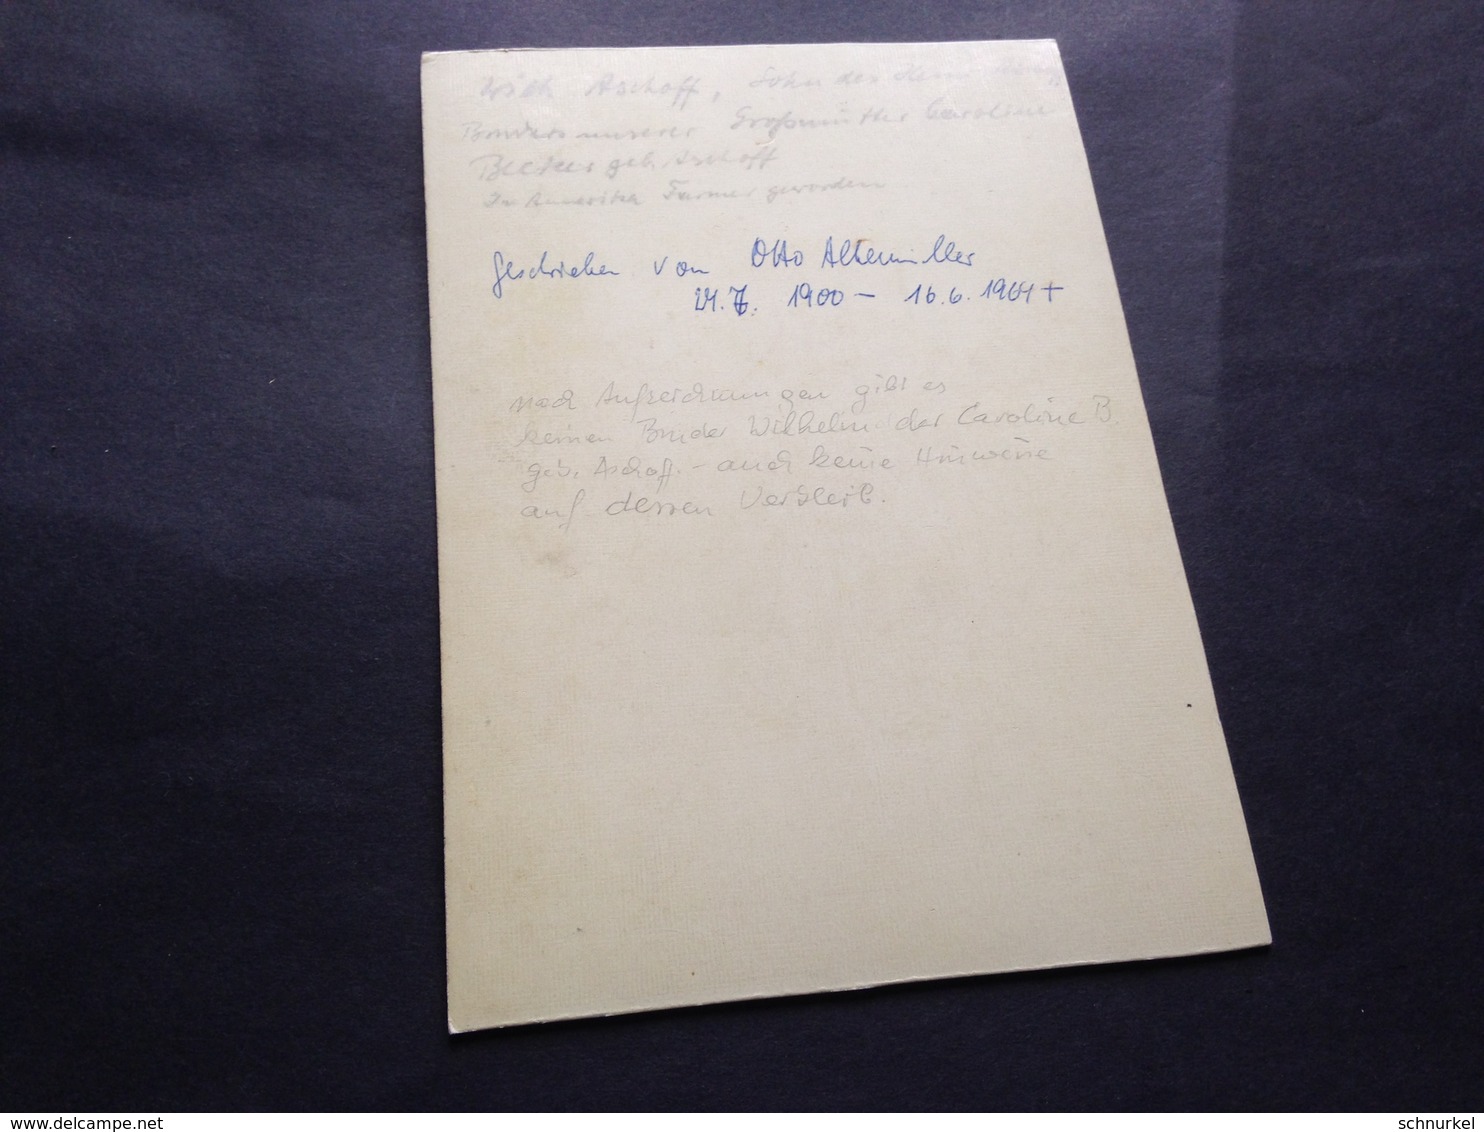 Aschoff, Sohn des
Bruders unserer Grossmutter Caroline
Becker geb. Aschoff
In Amerika Farmer geworden
Geschrieben von Otto Altemüller
24.7. 1900 - 16.6. 1961 +
nach Aufzeichnungen gibt es
keinen Bruder Wilhelm der Caroline B.
geb. Aschoff. - auch keine Hinweise
auf dessen Verbleib.
delcampe.net
schnurkel